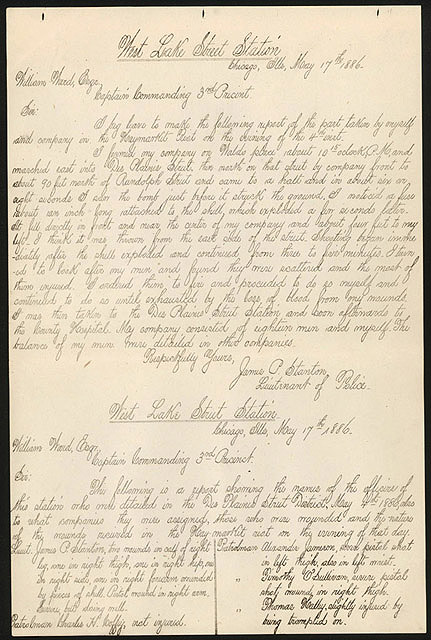 West Lake Street Station
Chicago, Ills, May 17th, 1886.
William Ward, Esqr,
Captain Commanding 3rd Precinct.
Sir:
I beg leave to make the following report of the part taken by myself
and company in the Haymarket Riot on the evening of the 4th inst.
I formed my company on Waldo place about 10 oclock P.M. and
marched east into Des Plaines Street, then north on that street by company front to
about 90 feet north of Randolph Street and came to a halt and in about six or
eight seconds I saw the bomb just before it struck the ground, I noticed a fuse
about an inch long attached to the shell, which exploded a few seconds later.
It fell directly in front and near the center of my company and about four feet to my
left. I think it was thrown from the east side of the street. Shooting began imme
diately after the shell exploded and continued from three to five minutes. I turn
ed to look after my men and found they were scattered and the most of
them injured. I ordered them to fire and proceeded to do so myself and
continued to do so until exhausted by the loss of blood from my wounds.
I was then taken to the Des Plaines Street Station and soon afterwards to
the County Hospital. My company consisted of eighteen men and myself. The
balance of my men were detailed in other companies.
Respectfully Yours,
James P. Stanton,
Lieutenant of Police.
West Lake Street Station.
Chicago, Ills, May 17th, 1886.
William Ward, Esqr,
Captain Commanding 3rd Precinct.
Sir:
The following is a report showing the names of the officers of
this station who were detailed in the Des Plaines Street District, May 4th 1886, also
to what companies they were assigned, those who were wounded and the nature
of the wounds received in the Haymarket riot on the evening of that day.
Lieut. James P. Stanton, two wounds in calf of right
leg, one in right thigh, one in right hip, one
in right side, one in right forearm wounded
by pieces of shell. Pistol wound in right arm,
severe but doing well.
Patrolman Charles H. Coffey, not injured.
Patrolman Alexander Jameson, severe pistol shot
in left thigh, also in left wrist.
" Timothy O'Sullivan, severe pistol
shot wound in right thigh.
" Thomas Kelley, slightly injured by
being trampled on.